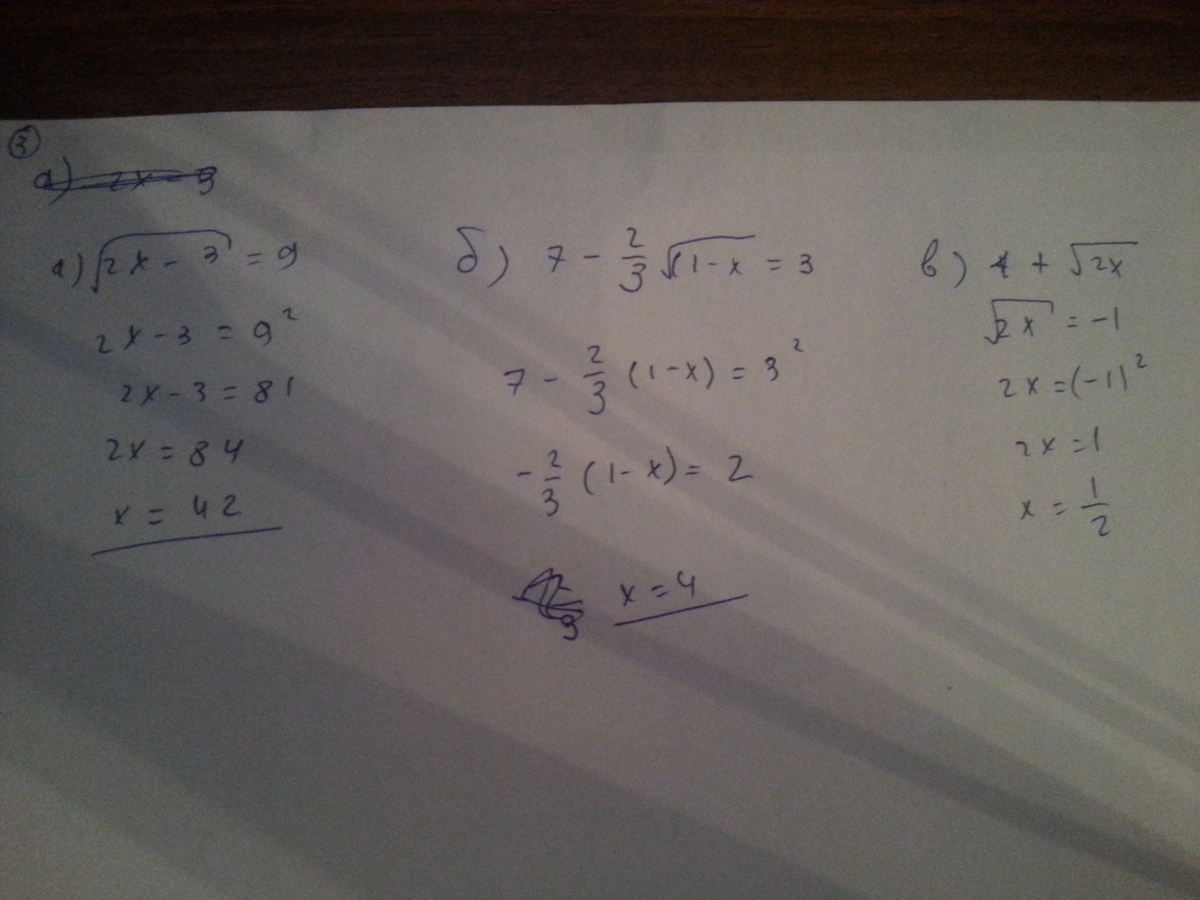 3
а) 2x - 3
а) √(2x - 3) = 9
2x - 3 = 9²
2x - 3 = 81
2x = 84
x = 42
б) 7 - 2/3 √(1 - x) = 3
7 - 2/3 (1 - x) = 3²
- 2/3 (1 - x) = 2
x = 4
в) 4 + √2x
√2x = -1
2x = (-1)²
2x = 1
x = 1/2